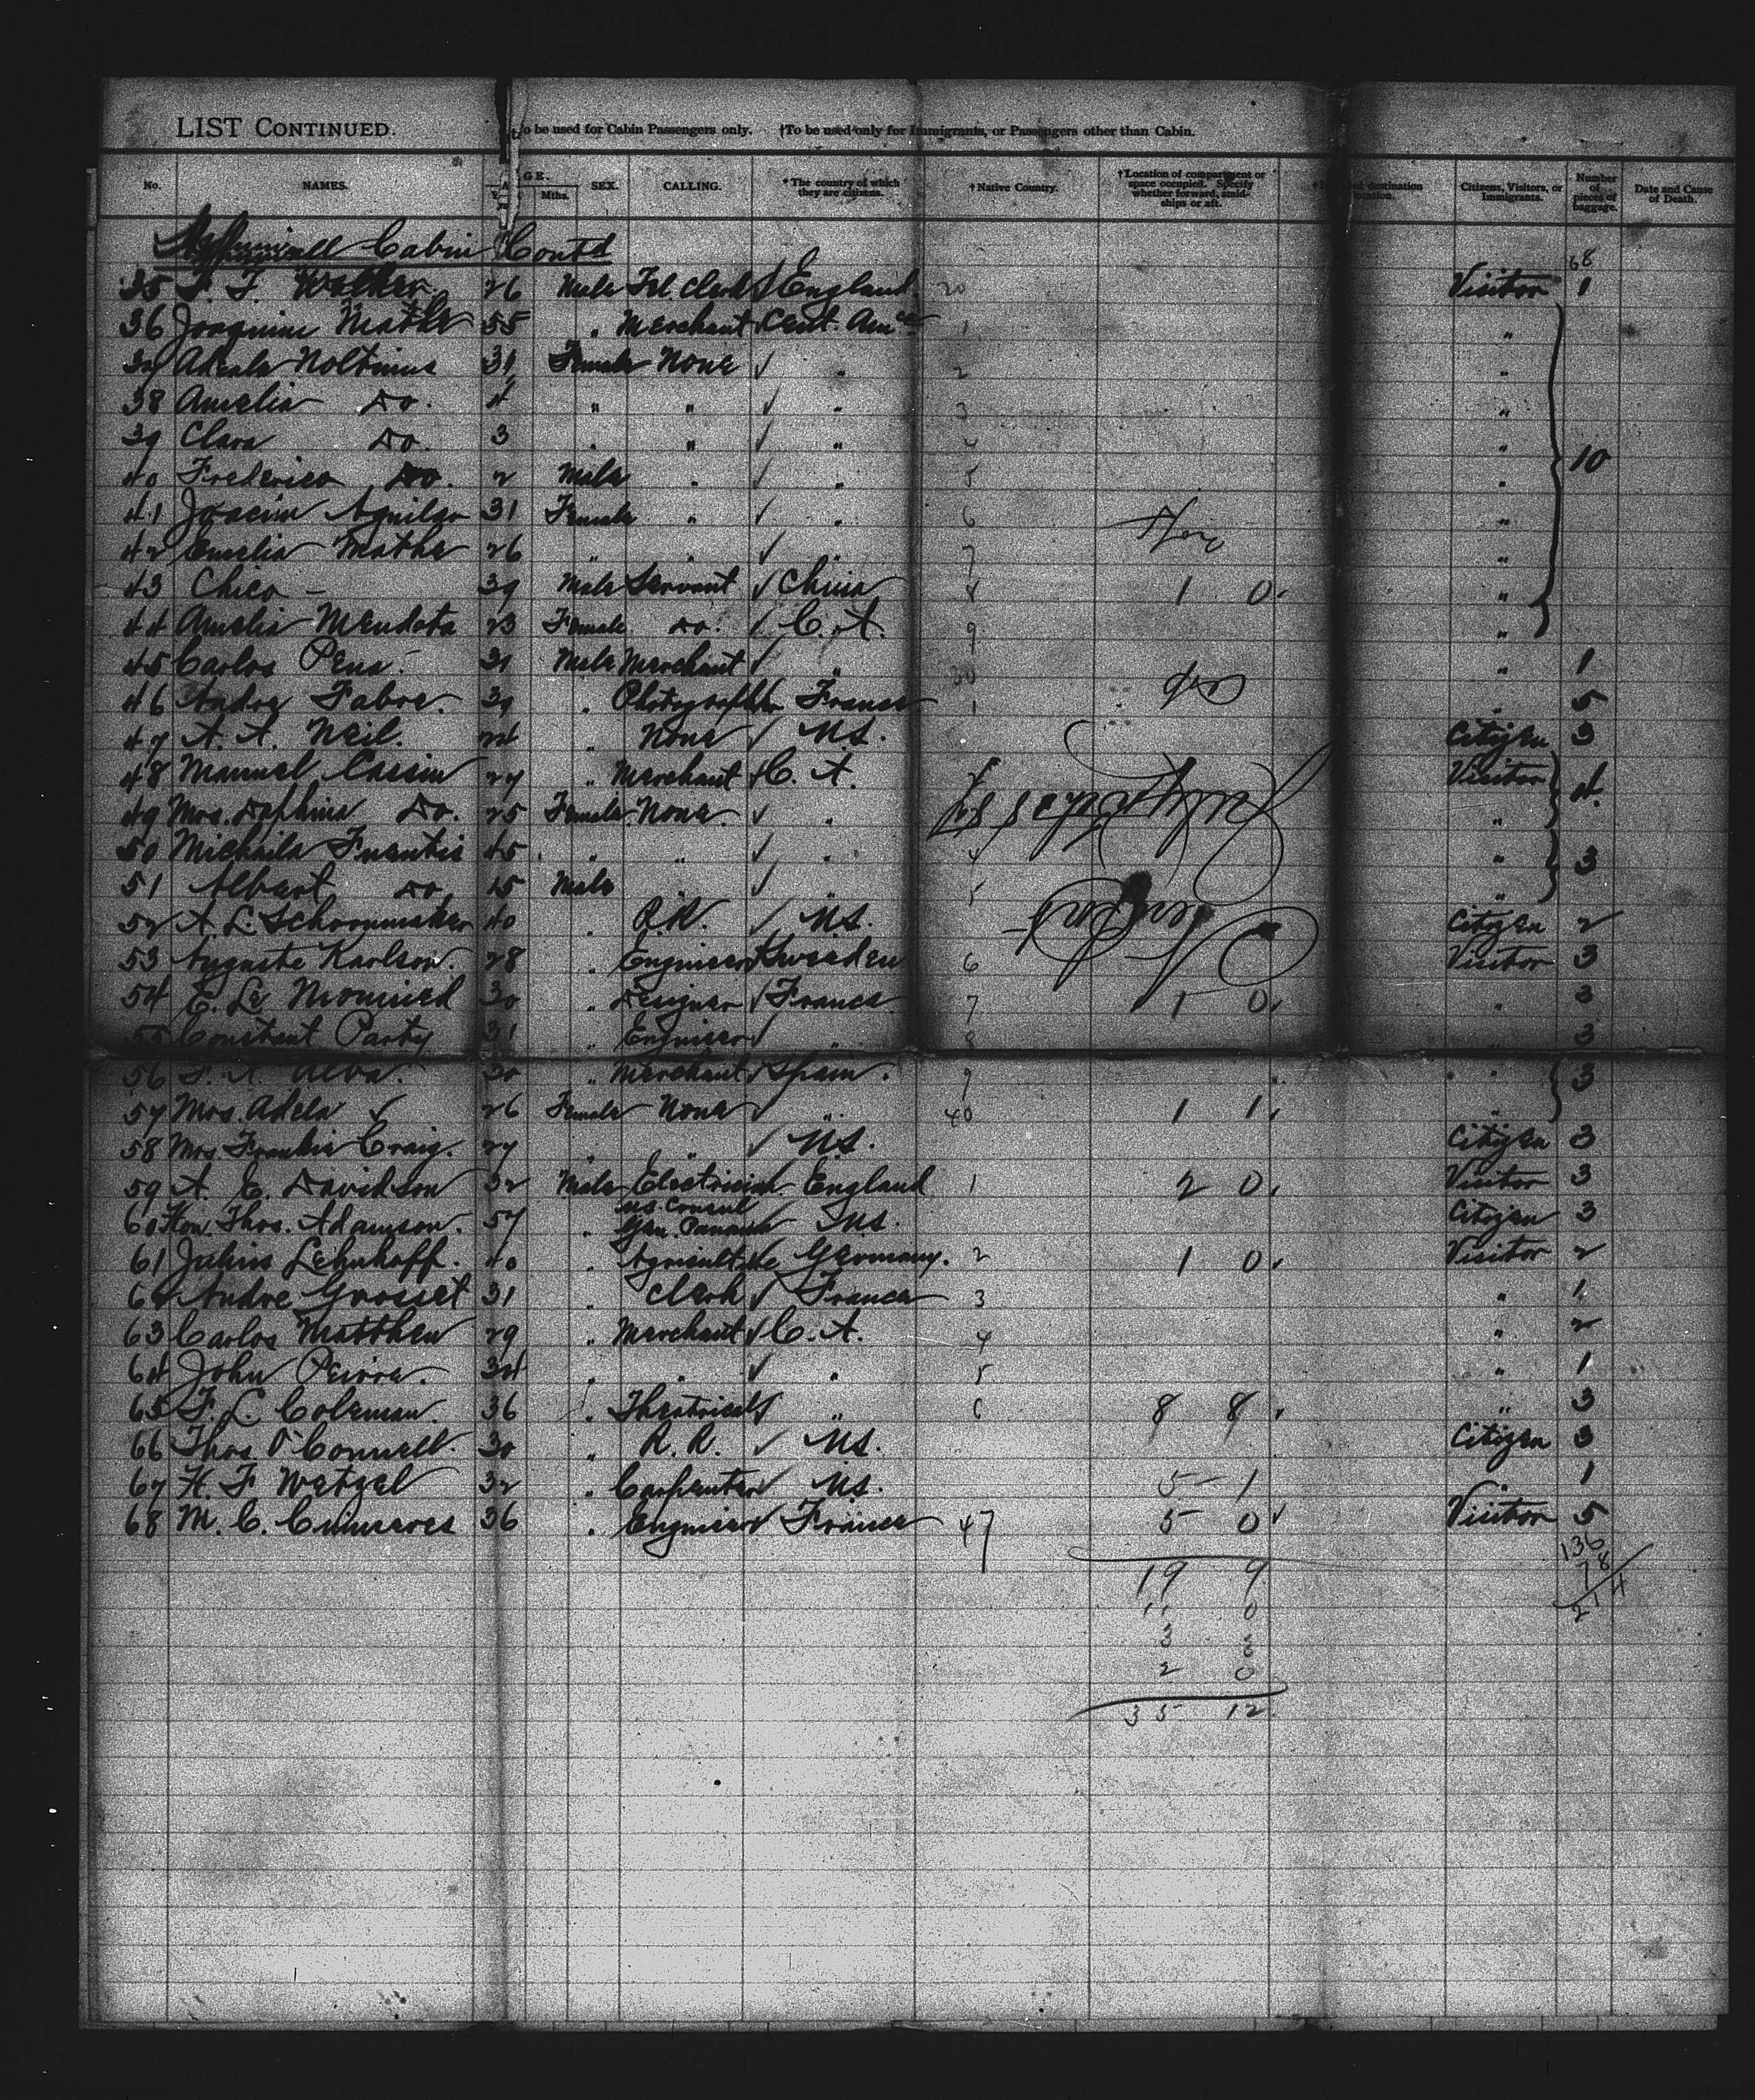 LIST CONTINUED.
to be used for Cabin Passengers only. †To be used only for Immigrants, or Passengers other than Cabin.
No. NAMES. AGE. Mths. SEX. CALLING. *The country of which they are citizens. †Native Country. †Location of compartment or space occupied. Specify whether forward, amidships or aft. destination Citizens, Visitors, or Immigrants. Number of pieces of baggage. Date and Cause of Death.
Cabin Contd
68
35 Walker 26 Male Tel. Clerk ✓ England 20 Visitor 1
36 Joaquim Mathe 55 " Merchant ✓ Cent. Amca 1 "
37 Adeala Noltinius 31 Female None ✓ " 2 "
38 Amelia Do. 4 " " ✓ " 3 "
39 Clara Do. 3 " " ✓ " 4 "
40 Frederico Do. 2 Male " ✓ " 5 " 10
41 Joacim Aguilar 31 Female " ✓ " 6 "
42 Emelia Mathe 26 " " ✓ " 7 "
43 Chico - 39 Male Servant ✓ China 8 1 0 "
44 Amelia Mendota 23 Female Do. ✓ C. A. 9 "
45 Carlos Pena 31 Male Merchant ✓ " 30 " 1
46 Andre Fabre. 31 " Photographer France 1 " 5
47 A. A. Neil. 24 " None ✓ U.S. Citizen 3
48 Manuel Cassin 27 " Merchant ✓ C. A. Visitor 4
49 Mrs. Dolphina Do. 25 Female None ✓ " "
50 Michaila Fuentis 45 " " ✓ " 4 " 3
51 Albert Do. 15 Male " ✓ " 5 "
52 A. L. Schoonmaker 40 " R.R. ✓ U.S. Citizen 2
53 Auguste Karlson. 28 " Engineer ✓ Sweeden 6 Visitor 3
54 E. Le 30 " Designer ✓ France 7 1 0 " 3
55 Constant Party 31 " Engineer ✓ " 8 " 3
56 Alva. 30 " Merchant ✓ Spain. 9 " 3
57 Mrs. Adela ✓ 26 Female None ✓ " 40 1 1 "
58 Mrs Frankie Craig. 27 " " ✓ U.S. Citizen 3
59 A. E. Davidson 32 Male Electrician England 1 2 0 Visitor 3
60 Hon. Thos. Adamson. 57 " U.S. Consul Gen. Panama ✓ U.S. Citizen 3
61 Julius Lehnhoff. 40 " Germany. 2 1 0 Visitor 2
62 Andre Grosset 31 " Clerk ✓ France 3 " 1
63 Carlos Matthew 29 " Merchant ✓ C. A. 4 " 2
64 John Peirre. 34 " " ✓ " 5 " 1
65 F. L. Coleman. 36 " Theatrical ✓ " 6 8 8 " 3
66 Thos. O'Connell. 30 " R. R. ✓ U.S. Citizen 3
67 H. F Wetzel 32 " Carpenter ✓ U.S. 5 1 " 1
68 M. C. 36 " Engineer ✓ France 47 5 0 Visitor 5
136
19 9 78
11 0 214
3 3
2 0
35 12